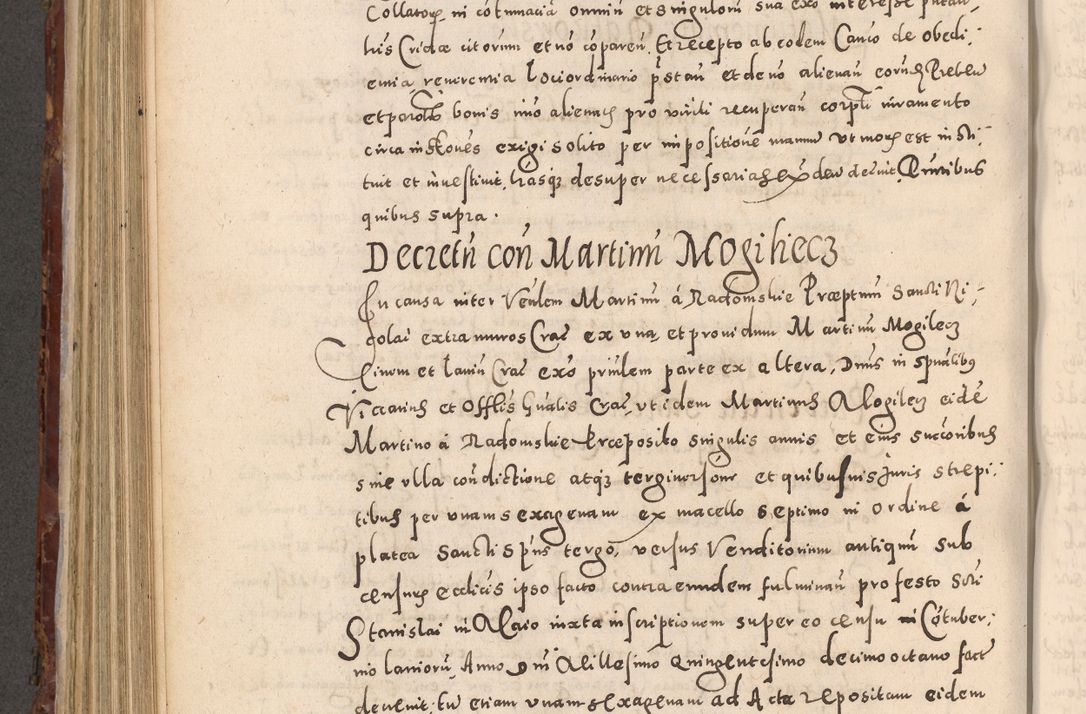 Collatorꝝ in cõtumaciã omniũ et singulorũ sua exñ interesse putan̄
his Cridæ citorum et nõ cõparen̄. Et recepto ab eodem Canco de obedi-
entia, reverentia loci ordinario p̃stan̄ et de nõ alienan̄ eorundꝫ Preben̄
et parochīs bonis imo alienatis pro viribi recuperan̄ corp̄li iuramento
circa in exigi solito per impositionē manuum ut moris est insti-
tuit et inuestiuit, l̃rasqꝫ desuper necessarias decreuit. P̃ntibus
quibus supra.
Decretũ con̄ Martinũ Mogiliecz
In causa inter Ven̄lem Martinũ á Radomskie Præptum̄ Sancti Ni-
colai extra muros Crac̄ ex vna, et providum Martinũ Mogilecz
Ciuem et laniũ Crac̄ exñ priulem parte ex altera, Dn̄s in sp̄ualibus
Vicarius et Offtis Gn̄alis Crac̄, ut idem Martinus Mogilecz eidē
Martino á Radomskie Præposito singulis annis et eius succoribus
sine vlla con̄dictione atqꝫ tergiuersõne et quibusuis Juris strepi-
tibus per vnam sexagenam ex macello septimo in ordine á
platea Sancti Sp̄us tergo, versus Venditorium antiquũ sub
censuris ecclīcis ipso facto contra eundem fulminan̄ pro festo Scti
Stanislai in Maio iuxta inscriptionem super eo censu in Cõtuber-
nio laniorũ, Anno Dñi Millesimo Quingentesimo decimo octauo fact̄
deuenit, tũ etiam vnam sexagenam ad Acta repositam eidem